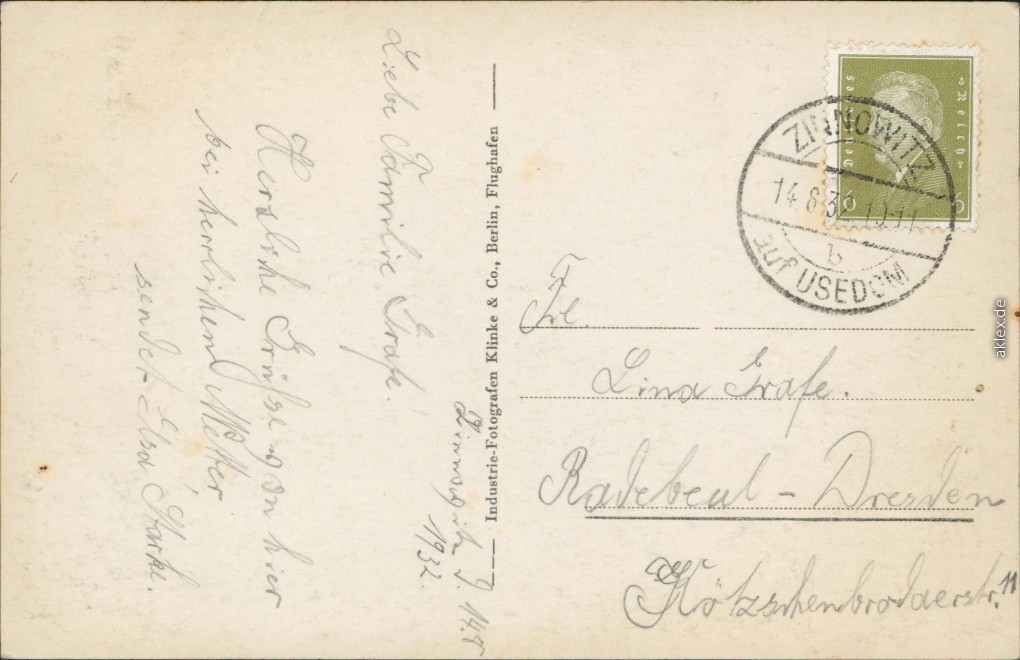 Zinnowitz, d. 14.8
1932.
Liebe Familie Grafe!
Herzliche Grüße von hier
bei herrlichem Wetter
sendet Elsa Starke.
Industrie-Fotografen Klinke & Co., Berlin, Flughafen
Deutsches Reich
6 6
ZINNOWITZ
14.8.32.10-11
b
auf USEDOM
Frl.
Lina Grafe.
Radebeul - Dresden
Kötzschenbrodaerstr. 11
aklex.de